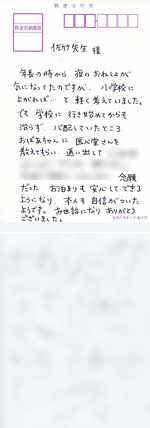 郵便はがき
料金別納郵便
佐竹先生 様
年長の時から 夜のおねしょが
気になってたのですが、小学校に
上がれば…と 軽く考えていました。
でも 学校に 行き始めてからも
治らず、心配していたところ
おばあちゃんに 医心堂さんを
教えてもらい、通い出して
念願
だった お泊まりも 安心して できる
ようになり、本人も 自信がついた
ようです。お世話になり ありがとう
ございました。